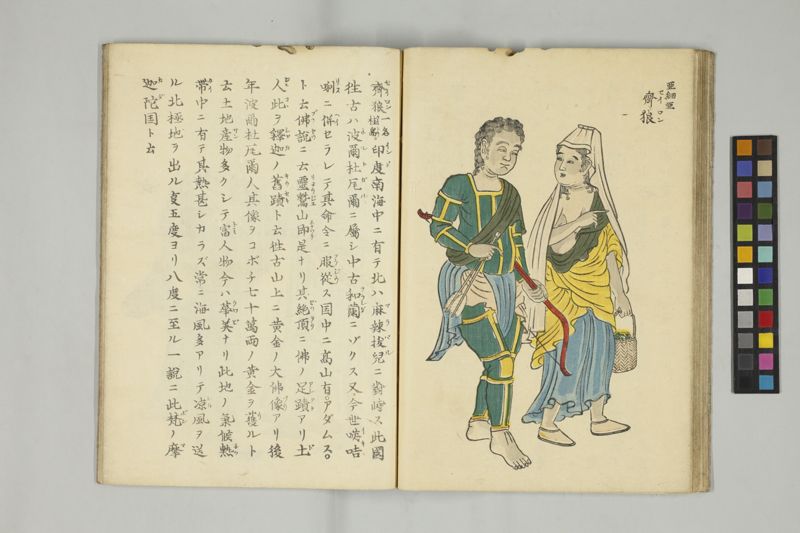 亞細亞
齊狼
セイロン
齊狼一名
印度南海中ニ有テ北ハ麻辣抜兒ニ對峙ス此國
往古ハ波爾杜瓦爾ニ屬シ中古和蘭ニゾクス又今世喚咭
唎ニ併セラレテ其命令ニ服従ス国中ニ高山有アダムス
ト云佛説ニ云靈鷲山即是ナリ其絶頂ニ佛ノ足蹟アリ土
人此ヲ釋迦ノ舊蹟ト云往古山上ニ黄金ノ大佛像アリ後
年波爾杜瓦爾人其像ヲコボチ七十萬両ノ黄金ヲ獲ルト
云土地産物多クシテ富人物今ハ華美ナリ此地ノ氣候熱
帯中ニ有テ其熱甚シカラズ常ニ海風多アリテ凉風ヲ送
ル北極地ヲ出ル亥五度ヨリ八度ニ至ル一説ニ此梵ノ摩
迦陀国ト云